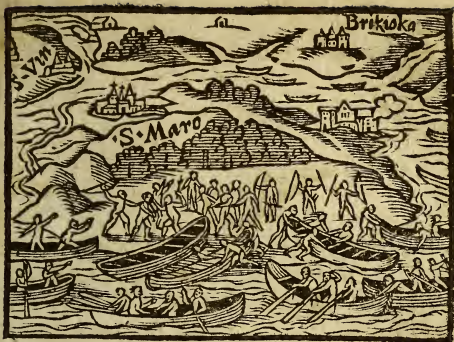 Brikioka
S·Vin
·S·Maro